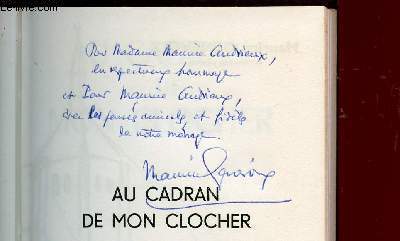 Pour Madame Maurice Andrieux,
en respectueux hommage
et Pour Maurice Andrieux,
avec les pensées amicales et fidèles
de notre ménage
Maurice Genevoix
AU CADRAN
DE MON CLOCHER